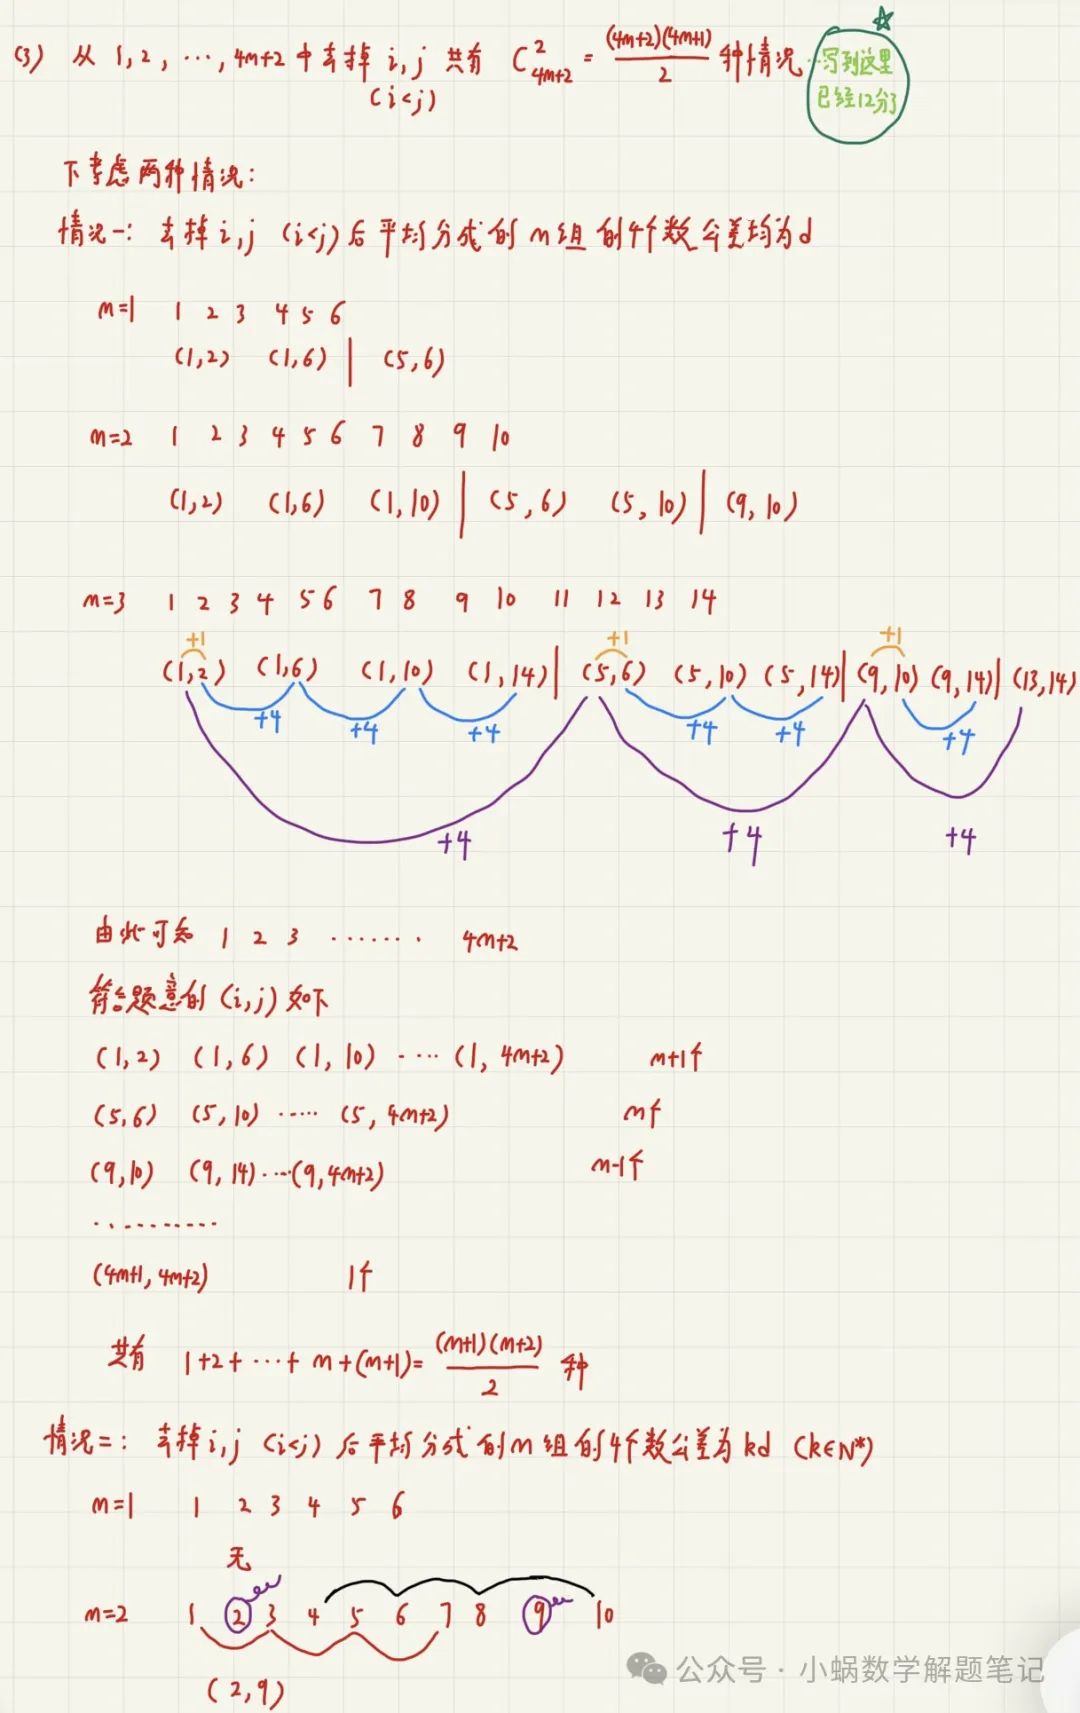 (3) 从 1,2,⋯,4m+2 中去掉 i,j 共有 C²₄ₘ₊₂ = (4m+2)(4m+1)/2 种情况
(i<j)
写到这里
已经12分了
下考虑两种情况:
情况一: 去掉 i,j (i<j) 后平均分成的 m组的4个数公差均为d
m=1 1 2 3 4 5 6
(1,2) (1,6) | (5,6)
m=2 1 2 3 4 5 6 7 8 9 10
(1,2) (1,6) (1,10) | (5,6) (5,10) | (9,10)
m=3 1 2 3 4 5 6 7 8 9 10 11 12 13 14
+1 +1 +1
(1,2) (1,6) (1,10) (1,14) | (5,6) (5,10) (5,14) | (9,10) (9,14) | (13,14)
+4 +4 +4 +4 +4 +4
+4 +4 +4
由此可知 1 2 3 ⋯⋯ 4m+2
符合题意的 (i,j) 如下
(1,2) (1,6) (1,10) ⋯⋯ (1,4m+2) m+1个
(5,6) (5,10) ⋯⋯ (5,4m+2) m个
(9,10) (9,14)⋯⋯(9,4m+2) m-1个
⋯⋯⋯⋯
(4m+1,4m+2) 1个
共有 1+2+⋯+m+(m+1)= (m+1)(m+2)/2 种
情况二: 去掉 i,j (i<j) 后平均分成的m组的4个数公差为kd (k∈N*)
m=1 1 2 3 4 5 6
无
m=2 1 2 3 4 5 6 7 8 9 10
(2,9)
公众号 · 小蜗数学解题笔记